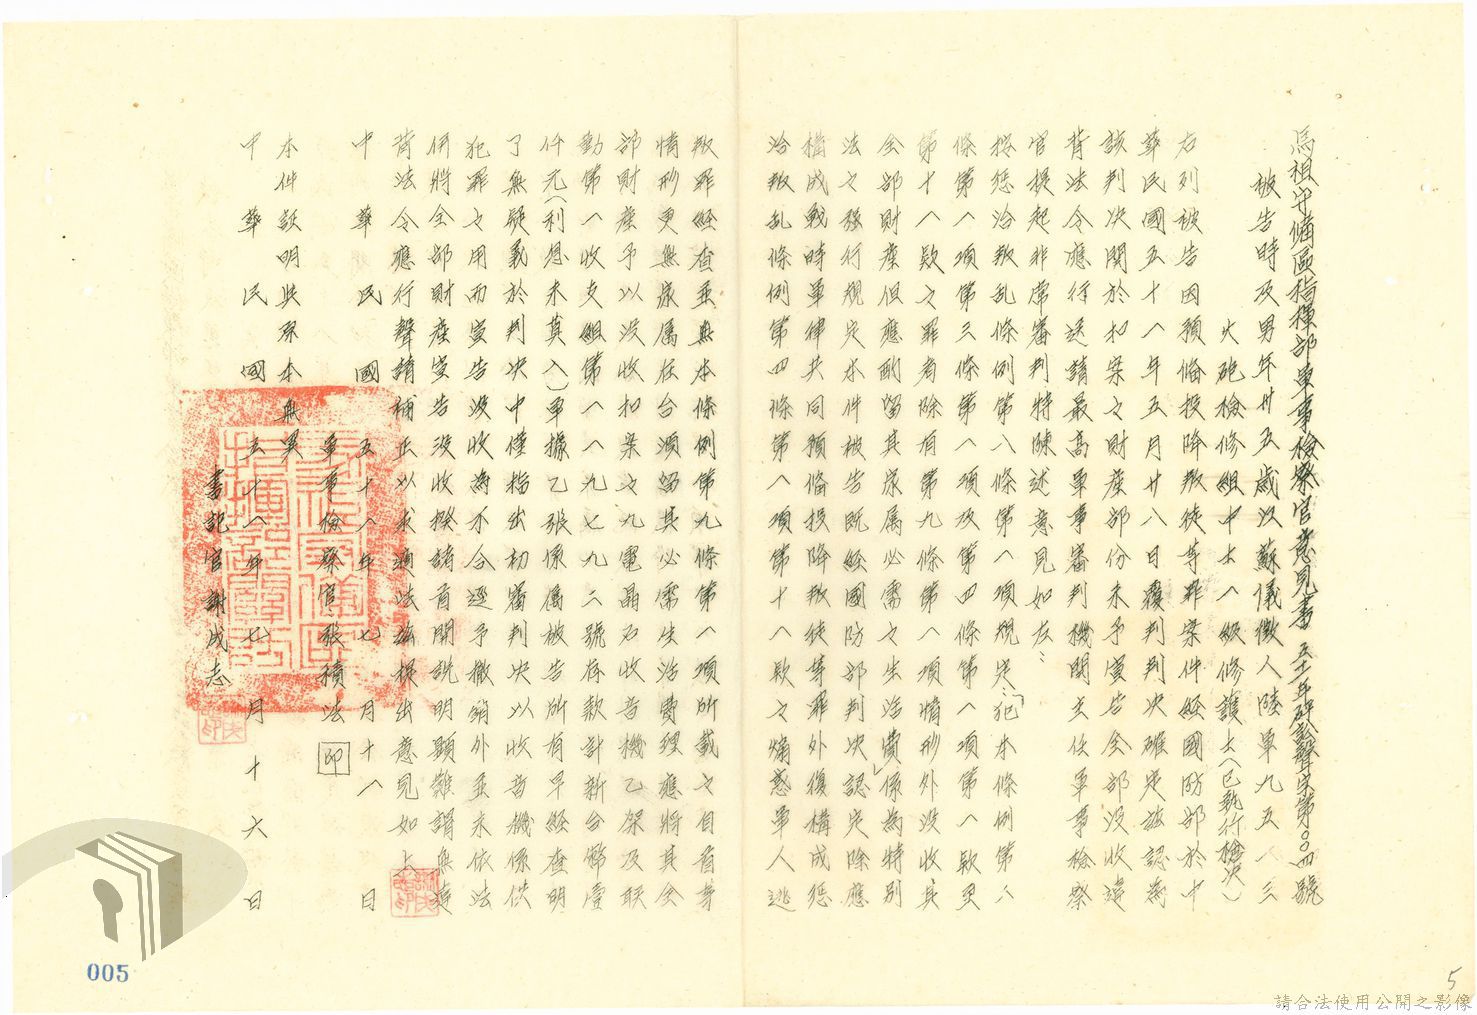 烏坵守備區指揮部軍事檢察官意見書 五十八年研訟聲字第〇〇四號
被告時及男年廿五歲江蘇儀徵人陸軍九五八三
火砲檢修組中士一級修護士(已執行槍決)
右列被告因預備投降叛徒等罪案件經國防部於中
華民國五十八年五月廿八日覆判判決確定茲認為
該判決關於扣案之財產部份未予宣告全部沒收違
背法令應行送請最高軍事審判機關主任軍事檢察
官提起非常審判特陳述意見如左:
按懲治叛乱條例第八條第一項規定:「犯本條例第八
條第一項第三條第一項及第四條第一項第一款至
第十一款之罪者除有第九條第一項情形外沒收其
全部財產但應酌留其家屬必需之生活費」係為特別
法之強行規定本件被告既經國防部判決認定除應
構成戰時軍律共同預備投降叛徒等罪外復構成懲
治叛乱條例第四條第一項第十一款之煽惑軍人逃
叛罪經查並無本條例第九條第一項所載之自首等
情形更無家屬在台須留其必需生活費理應將其全
部財產予以沒收扣案之九電晶石收音機乙架及聯
勤第一收支組第一一九七九二號存款計新台幣壹
仟元(利息未算入)單據乙張係屬被告所有早經查明
了無疑義於判決中僅指出初審判決以收音機係供
犯罪之用而宣告沒收為不合逕予撤銷外並未依法
併將全部財產宣告沒收揆諸首開說明顯難謂無違
背法令應行聲請補正以求適法茲提出意見如上
中華民國五十八年七月十八日
軍事檢察官張積法 印
本件證明與原本無異
中華民國五十八年七月十六日
書記官謝成志
005
5
請合法使用公開之影像